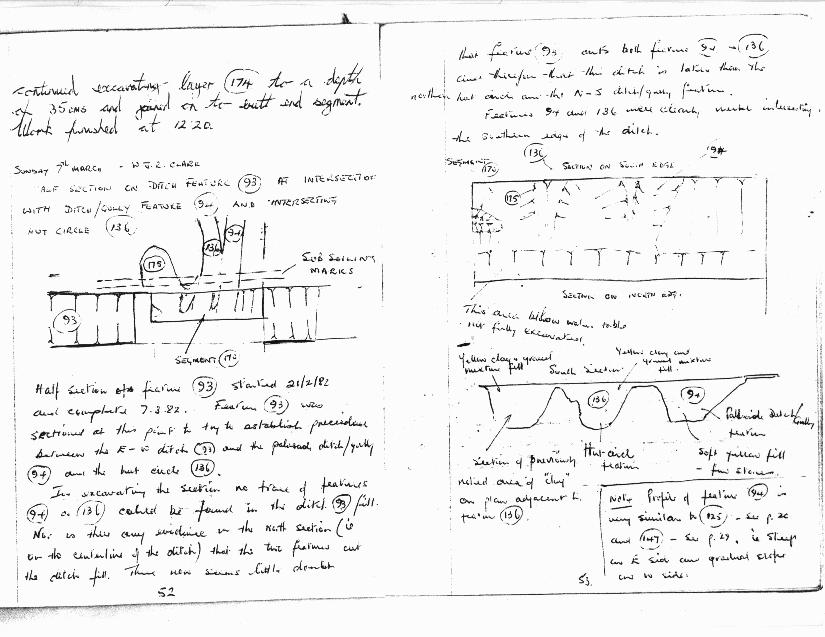 continued excavating layer (174) to a depth
of 35cms and joined on to butt end segment.
Work finished at 12.20.
SUNDAY 7TH MARCH - W J.R. CLARK
HALF SECTION ON DITCH FEATURE (93) AT INTERSECTION
WITH DITCH/GULLY FEATURE (94) AND INTERSECTING
HUT CIRCLE (136)
94
136
175
SUB SOILING
MARKS
93
SEGMENT (170)
Half section of feature (93) started 21/2/82
and completed 7.3.82. Feature (93) was
sectioned at this point to try to establish precedence
between the E-W ditch (93) and the palisade ditch/gully
(94) and the hut circle (136).
In excavating the section no trace of features
(94) or (136) could be found in the ditch (93) fill.
Nor is there any evidence in the north section (ie
on the centreline of the ditch) that the two features cut
the ditch fill. There now seems little doubt
52
that feature (93) cuts both feature (94 + (136)
and therefore that the ditch is later than the
northern hut circle and the N-S ditch/gully feature.
Features 94 and 136 were clearly intersecting
the southern edge of the ditch.
SEGMENT
170
136
SECTION ON SOUTH EDGE
94
175
SECTION ON NORTH EDGE.
This area below water table
not fully excavated.
Yellow clay + gravel
mixture fill
South Section
Yellow clay and
gravel mixture
fill.
136
94
Palisade Ditch/
Gully
feature
Section of previously
noted area of "clay"
on plan adjacent to
feature (136).
Hut circle
feature
Soft yellow fill
- few stones.
Note Profile of feature (94) is
very similar to (125) - see p.20
and (147) - see p.29. ie steep
on E side and gradual slope
on W side.
53.